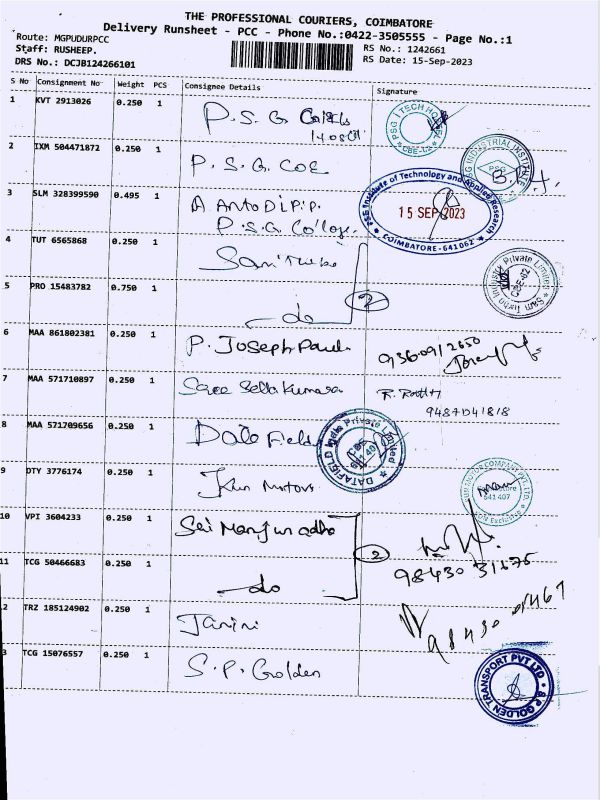 THE PROFESSIONAL COURIERS, COIMBATORE
Delivery Runsheet - PCC - Phone No.:0422-3505555 - Page No.:1
Route: MGPUDURPCC
Staff: RUSHEEP.
DRS No.: DCJB124266101
RS No.: 1242661
RS Date: 15-Sep-2023
S No Consignment No Weight PCS Consignee Details Signature
1 KVT 2913026 0.250 1 P.S.G.
PSG I TECH HOSTEL
CBE-62
2 IXM 504471872 0.250 1 P.S.G. COE
PSG INDUSTRIAL INSTITUTE
PSG
3 SLM 328399590 0.495 1 A Anto
P.S.G College.
PSG Institute of Technology and Applied Research
15 SEP 2023
COIMBATORE-641062
4 TUT 6565868 0.250 1
Sam Turbo Industry Private Limited
CBE-62
5 PRO 15483782 0.750 1 do 2
6 MAA 861802381 0.250 1 P. Joseph Paul
7 MAA 571710897 0.250 1 Sree Selva Kumaran
8 MAA 571709656 0.250 1 Data Field
DATAFIELD India Private Limited
9 DTY 3776174 0.250 1 Motors
641 407
10 VPI 3604233 0.250 1 Sai Manjunadha
11 TCG 50466683 0.250 1 do 2
98430 31675
2 TRZ 185124902 0.250 1
3 TCG 15076557 0.250 1 S.P. Golden
S P GOLDEN TRANSPORT PVT LTD